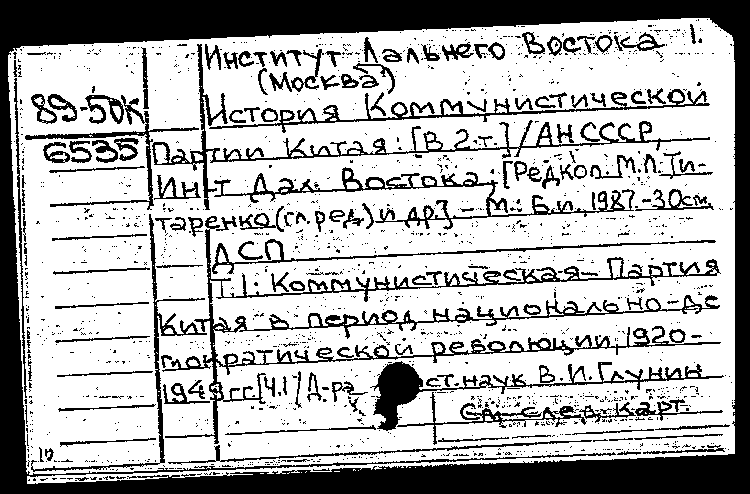 Институт Дальнего Востока 1.
(Москва)
89-5ДК История Коммунистической
6535 Партии Китая: [В 2 т.] / АН СССР,
Ин-т Дал. Востока; [Редкол. М.Л. Ти-
таренко (гл. ред.) и др.] – М.: Б.и., 1987.-30см.
ДСП
Т.1: Коммунистическая Партия
Китая в период национально-де
мократической революции, 1920-
1949 гг. [Ч.1] / Д-ра ист. наук В.И. Глунин
См. след. карт.
10